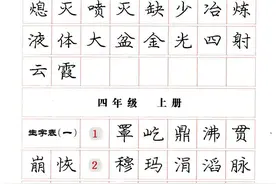 熄灭喷灭缺少冶炼
液体大盆金光四射
云霞
四年级 上册
生字表(一) 1 罩屹鼎沸贯
崩恢 2 穆玛涓滔脉